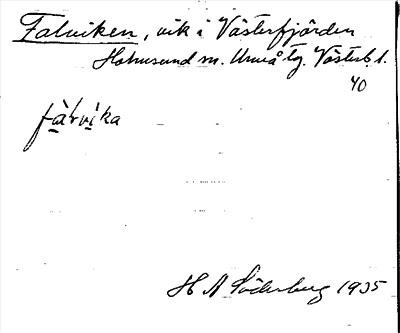 Falviken, vik i Västerfjärden
Holmsund sn. Umeå tg. Västerb. l.
40
fàrvika
H A Söderberg 1935